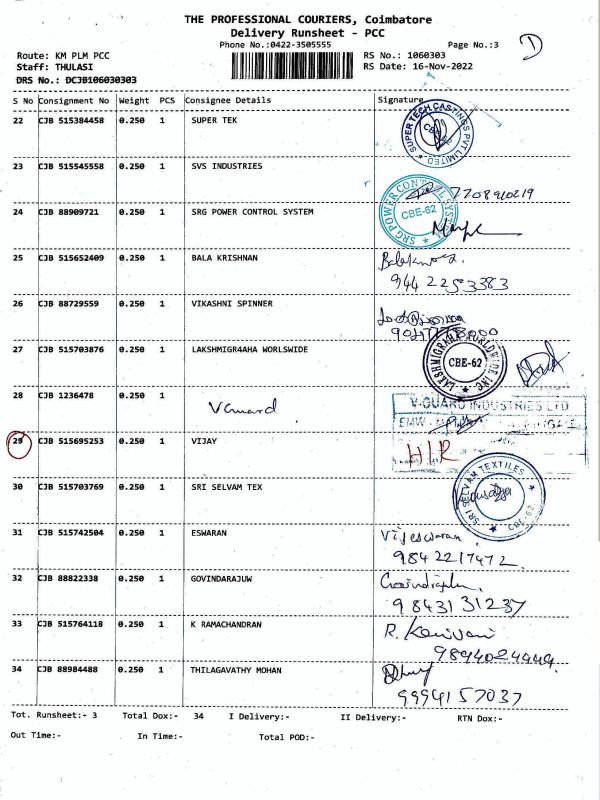 THE PROFESSIONAL COURIERS, Coimbatore
Delivery Runsheet - PCC
Phone No.:0422-3505555
Page No.:3
Route: KM PLM PCC
RS No.: 1060303
Staff: THULASI
RS Date: 16-Nov-2022
DRS No.: DCJB106030303
S No Consignment No Weight PCS Consignee Details Signature
22 CJB 515384458 0.250 1 SUPER TEK
SUPER TECH CASTINGS PVT LIMITED
23 CJB 515545558 0.250 1 SVS INDUSTRIES
7708910219
24 CJB 88909721 0.250 1 SRG POWER CONTROL SYSTEM
SRG POWER CONTROL SYSTEM
CBE-62
25 CJB 515652409 0.250 1 BALA KRISHNAN
944 2253383
26 CJB 88729559 0.250 1 VIKASHNI SPINNER
27 CJB 515703876 0.250 1 LAKSHMIGR4AHA WORLSWIDE
LAKSHMIGRAHA WORLDWIDE INC
CBE-62
28 CJB 1236478 0.250 1 V Guard
V-GUARD INDUSTRIES LTD
29 CJB 515695253 0.250 1 VIJAY
H/R
30 CJB 515703769 0.250 1 SRI SELVAM TEX
SRI SELVAM TEXTILES
CBE-62
31 CJB 515742504 0.250 1 ESWARAN
Vijeswaran
9842217472
32 CJB 88822338 0.250 1 GOVINDARAJUW
98431 31237
33 CJB 515764118 0.250 1 K RAMACHANDRAN
34 CJB 88984488 0.250 1 THILAGAVATHY MOHAN
9994157037
Tot. Runsheet:- 3 Total Dox:- 34 I Delivery:- II Delivery:- RTN Dox:-
Out Time:- In Time:- Total POD:-